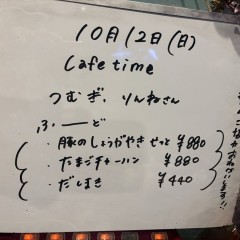 10月12日(日)
Cafe time
つむぎ、りんねさん
ふーど
・豚のしょうがやき せっと ¥880
・たまごチャーハン ¥880
・だしまき ¥440